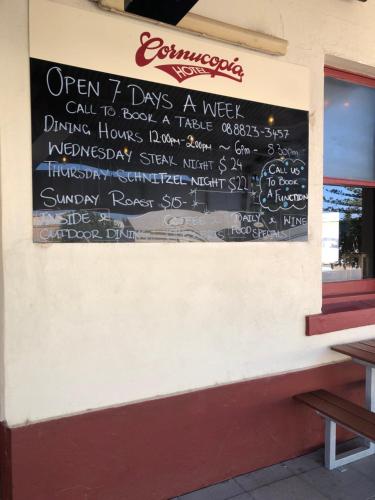 Cornucopia
HOTEL
OPEN 7 DAYS A WEEK
CALL TO BOOK A TABLE 08 8823-3457
DINING HOURS 12.00pm-2.00pm ~ 6pm - 8.30pm
WEDNESDAY STEAK NIGHT $24
THURSDAY SCHNITZEL NIGHT $22
CALL US
TO BOOK
A FUNCTION
SUNDAY ROAST $15-
INSIDE &
OUTDOOR DINING
COFFEE &
DAILY
FOOD SPECIALS
& WINE